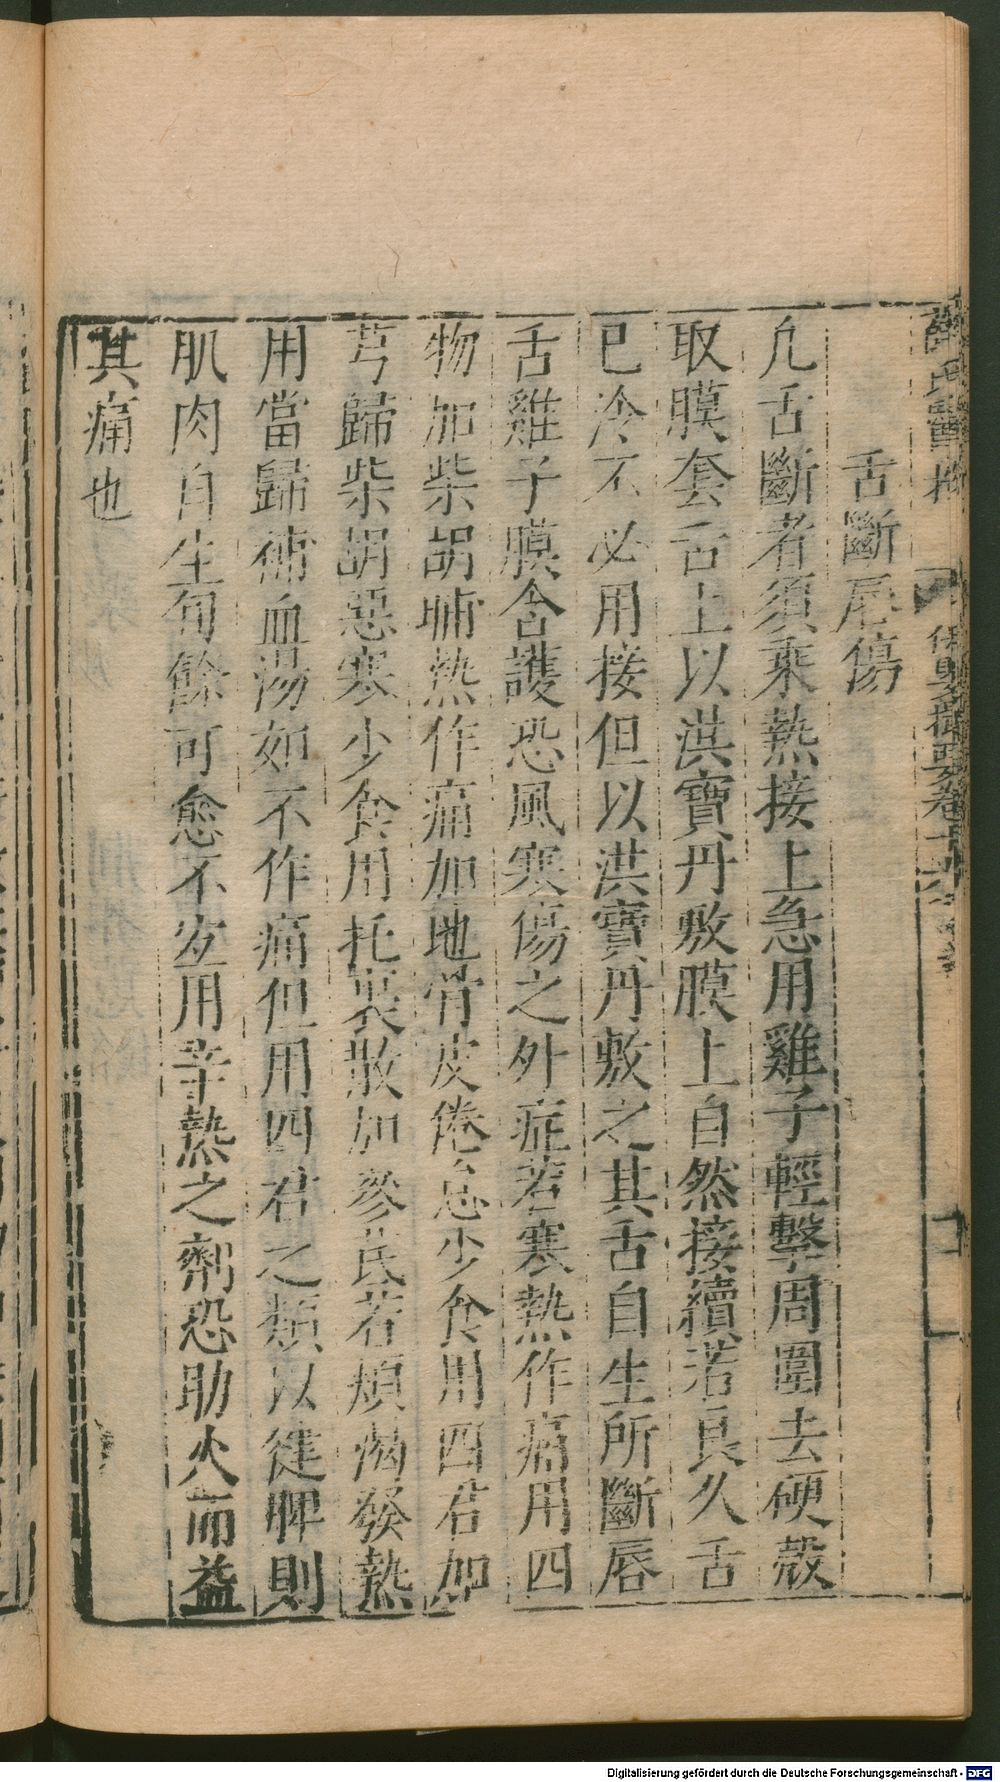 薛氏醫按 保嬰撮要卷十六
舌斷唇傷
凢舌斷者須乘熱接上急用雞子輕擊周圍去硬殼
取膜套舌上以洪寶丹敷膜上自然接續若良久舌
已冷不必用接但以洪寶丹敷之其舌自生所斷唇
舌雞子膜含護恐風寒傷之外症若寒熱作痛用四
物加柴胡晡熱作痛加地骨皮倦怠少食用四君加
芎歸柴胡惡寒少食用托裏散加參芪若煩渴發熱
用當歸補血湯如不作痛但用四君之類以健脾則
肌肉自生旬餘可愈不宜用辛熱之劑恐助火而益
其痛也
Digitalisierung gefördert durch die Deutsche Forschungsgemeinschaft - DFG